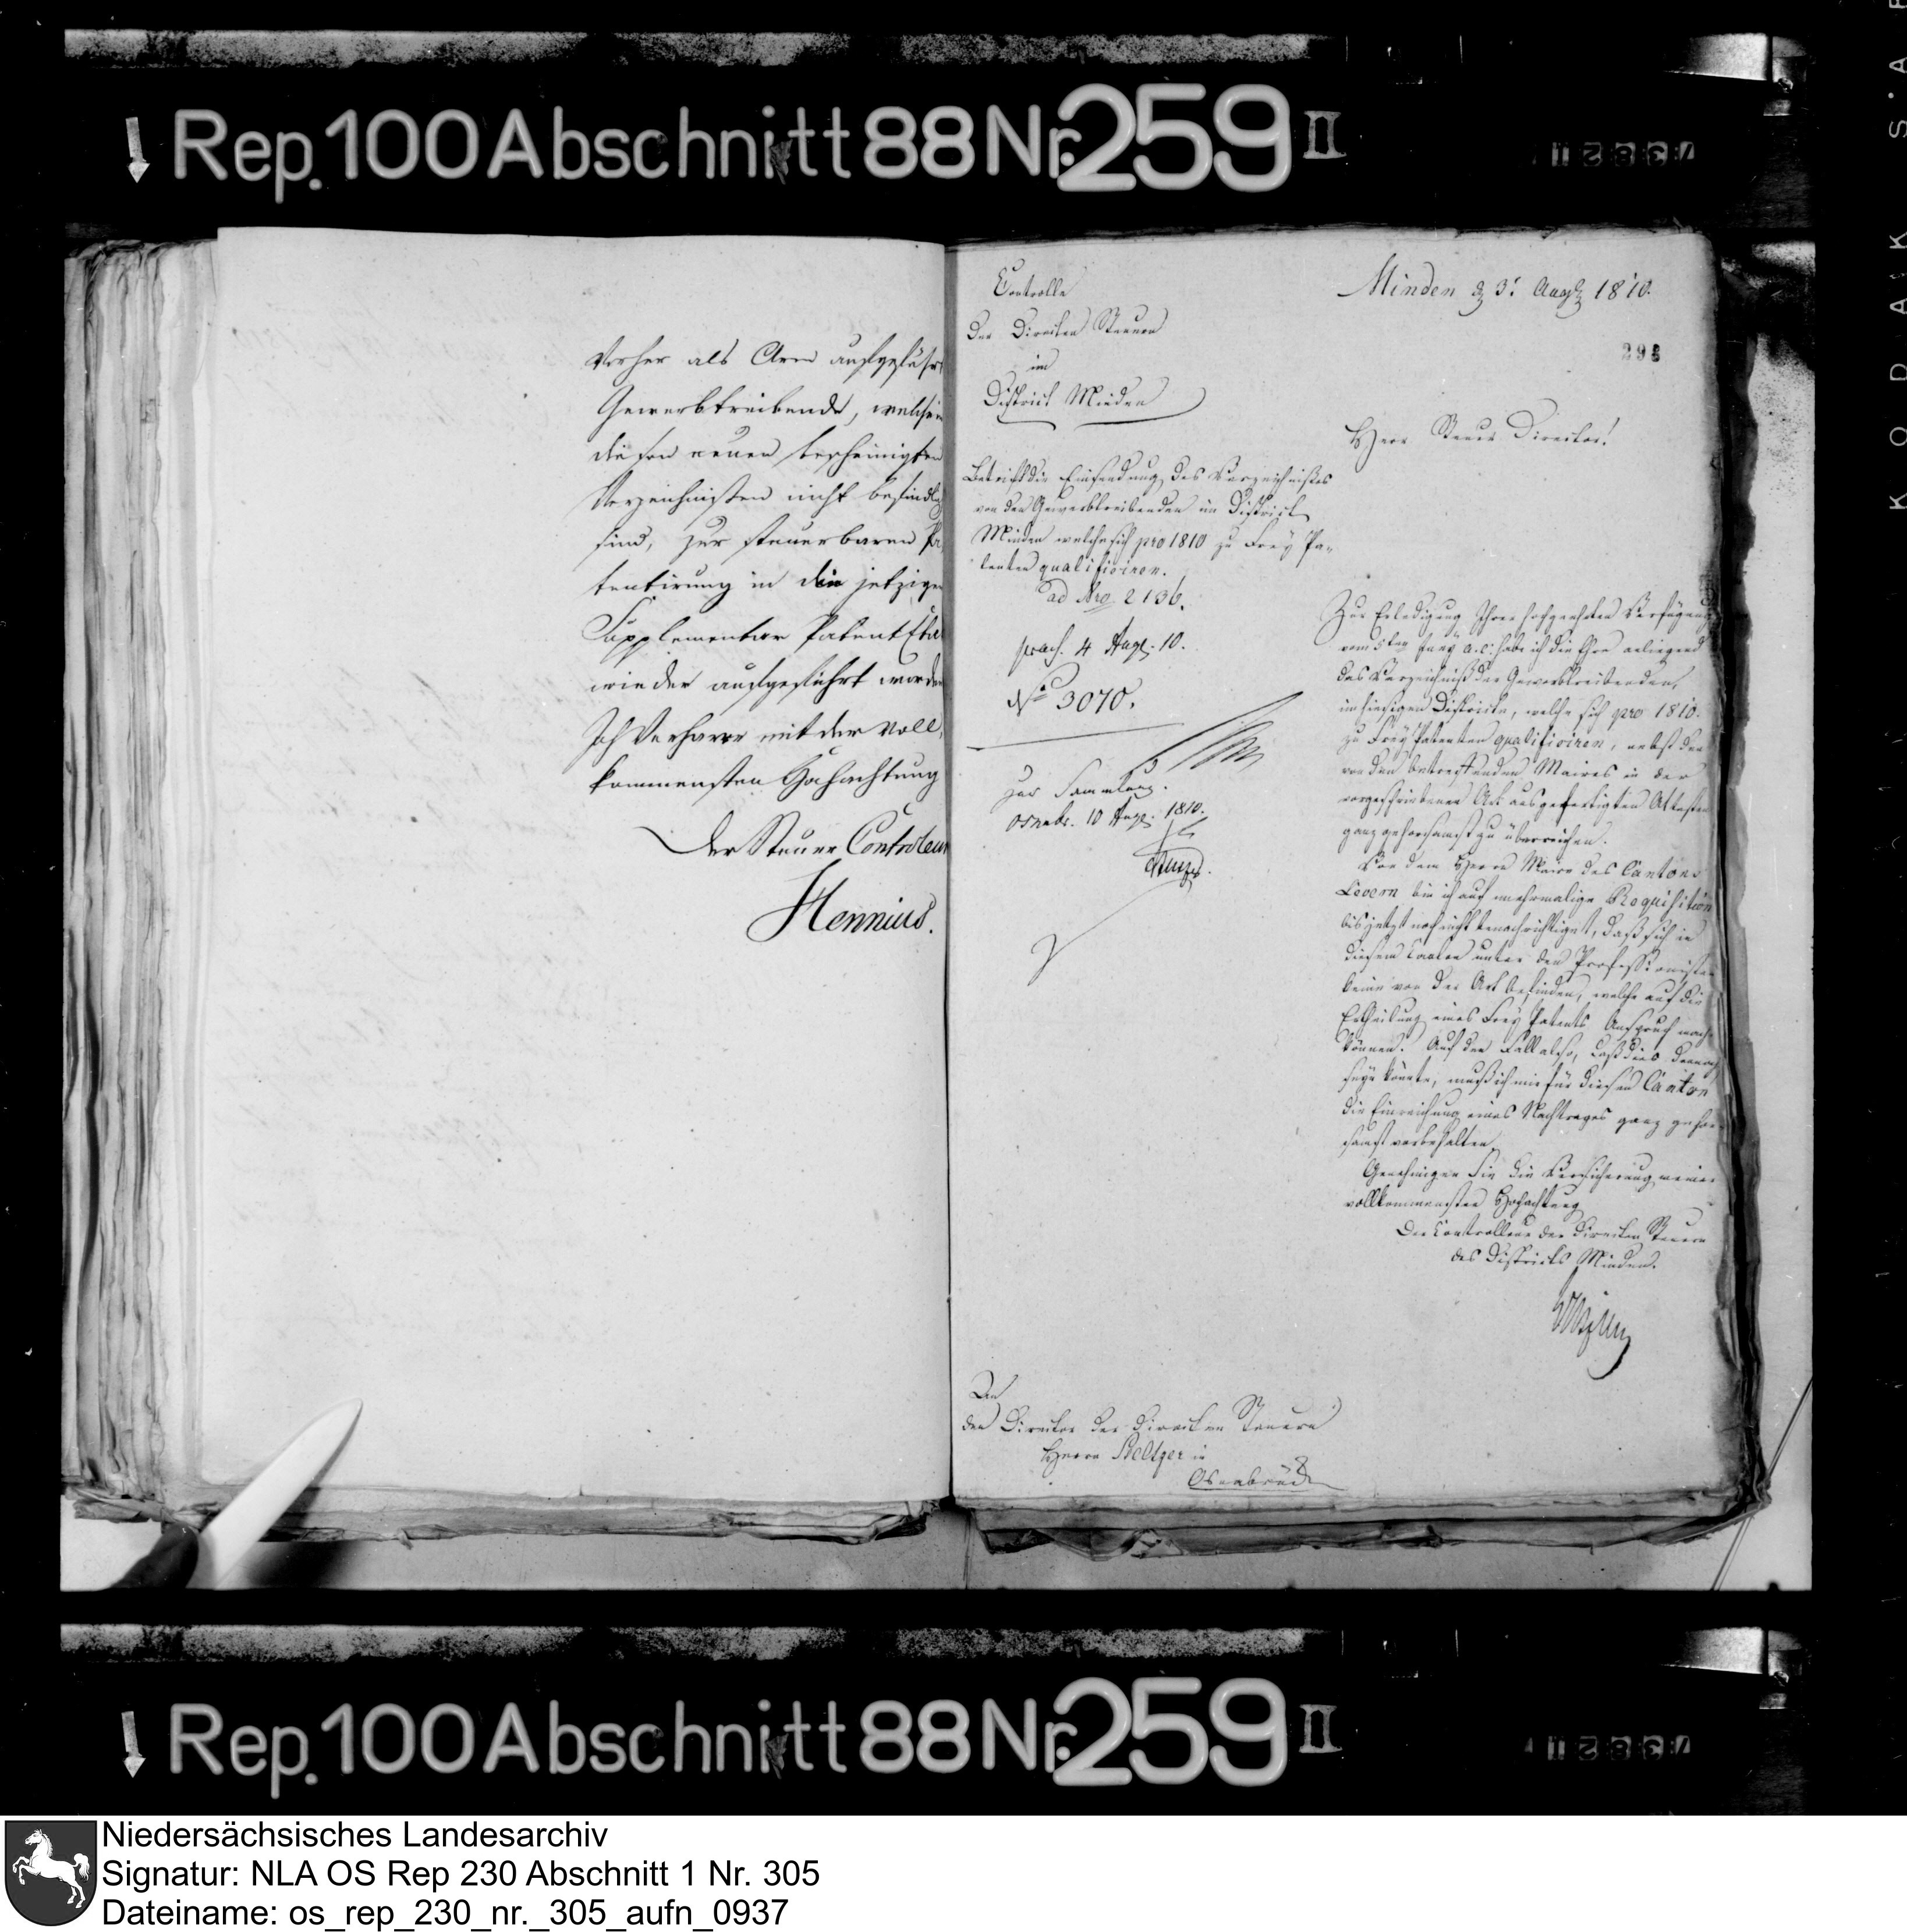 Rep. 100 Abschnitt 88 Nr. 259 II
Vorher als Arm aufgeführt
Gewerbtreibende, welche in
diesen neuen bescheinigten
Verzeichnissen nicht befindlich
sind, zur steuerbaren Pa
tentirung in die jetzigen
Supplementar Patent Etat
wieder aufgeführt worden
Ich Verharre mit der voll
kommensten Hochachtung
Der Steuer Controleur
Hennius.
Controlle
Der Direckten Steuern
im
District Minden
Minden d 3t. Augst 1810.
298
Herr Steuer Director!
Betrift die Einsendung des Verzeichnißes
von den Gewerbtreibenden im District
Minden welche sich pro 1810 zu Frey Pa-
tenten qualificiren.
ad Nro 2136.
praes. 4 Aug. 10.
No 3070.
Zur Sammlung.
Osnabr. 10 Aug. 1810.
Zur Erledigung Ihrer hochgeehrten Verfügung
vom 5ten a. c. habe ich die Ehre anliegend
das Verzeichniß der Gewerbtreibenden,
im hiesigen Districte, welche sich pro 1810.
zu Frey Patenten qualificiren, nebst den
von den betreffenden Maires in der
vorgeschriebenen Art ausgefertigten Attesten
ganz gehorsamst zu überreichen.
Von dem Herrn Maire des Cantons
Levern bin ich auf mehrmalige Requisition
bis jetzt noch nicht benachrichtiget, daß sich in
diesem Canton unter den Professionisten
keine von der Art befinden, welche auf die
Ertheilung eines Frey Patents Anspruch machen
können. Auf den Fall also, daß dies dennoch
seyn könnte, muß ich mir für diesen Canton
die Einreichung eines Nachtrages ganz gehor-
samst vorbehalten.
Genehmigen Sie die Versicherung meiner
vollkommensten Hochachtung
Der Controlleur der Direckten Steuern
des Districts Minden.
An
den Director der Direckten Steuern
Herrn Beltzer in
Osnabrück
Rep. 100 Abschnitt 88 Nr. 259 II
KODAK S.A
Niedersächsisches Landesarchiv
Signatur: NLA OS Rep 230 Abschnitt 1 Nr. 305
Dateiname: os_rep_230_nr._305_aufn_0937